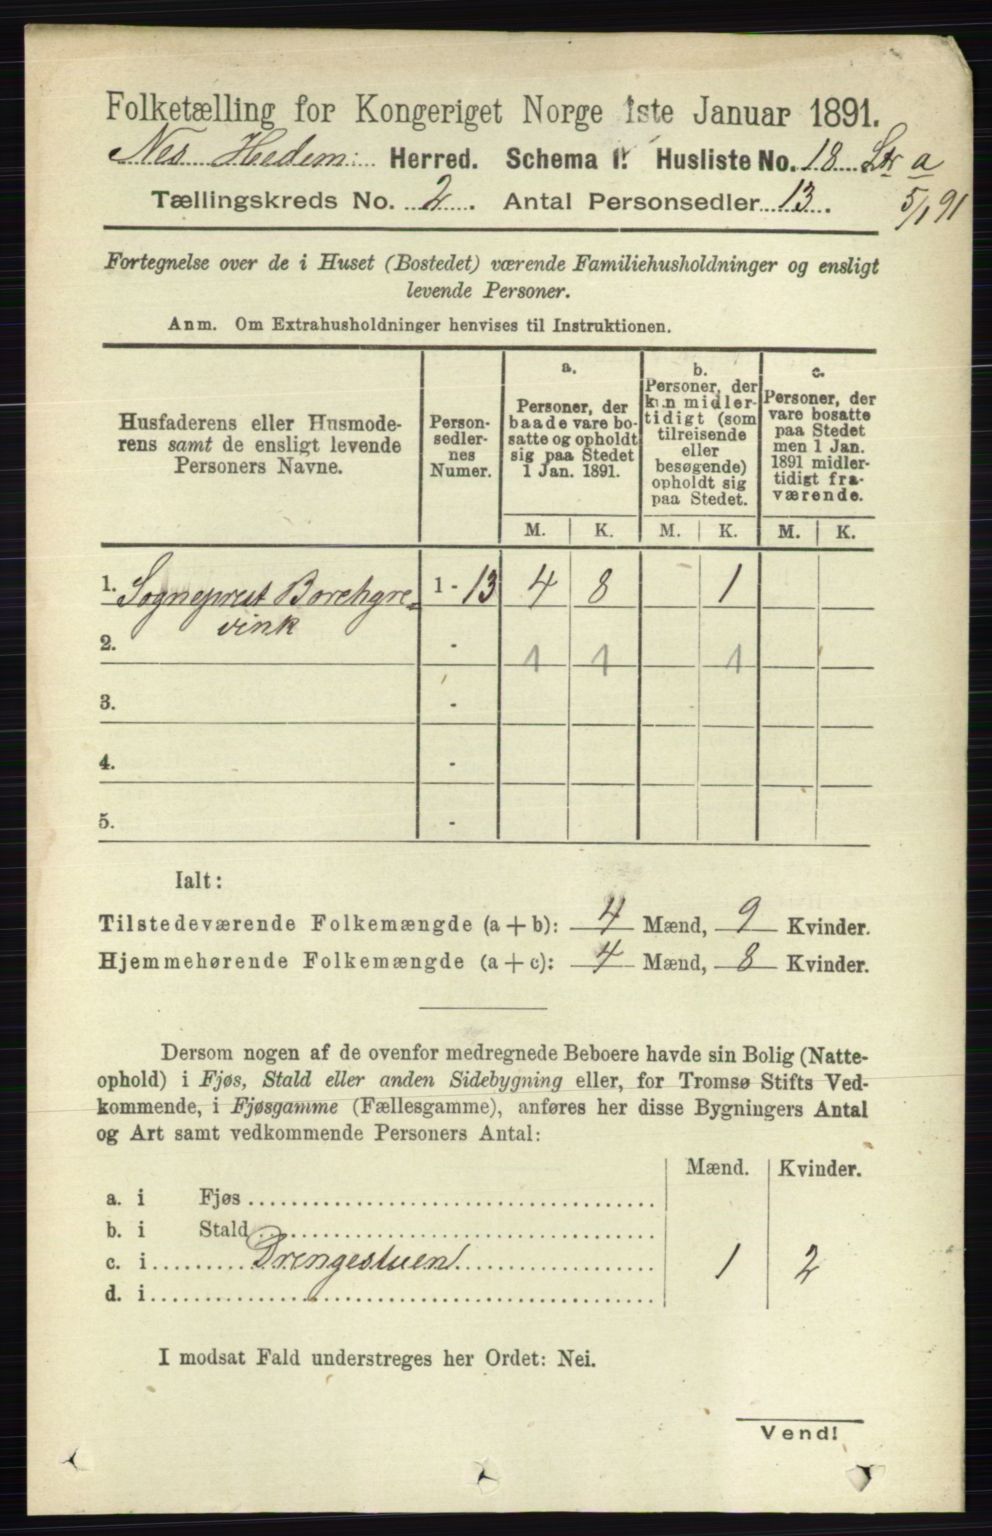 Folketælling for Kongeriget Norge 1ste Januar 1891.
Nes Hedem: Herred. Schema I. Husliste No. 18 Ltr a
Tællingskreds No. 2. Antal Personsedler 13. 5/1 91
Fortegnelse over de i Huset (Bostedet) værende Familiehusholdninger og ensligt
levende Personer.
Anm. Om Extrahusholdninger henvises til Instruktionen.
Husfaderens eller Husmode-
rens samt de ensligt levende
Personers Navne.
Person-
sedler-
nes
Numer.
a.
Personer, der
baade vare bo-
satte og opholdt
sig paa Stedet
1 Jan. 1891.
b.
Personer, der
kun midler-
tidigt (som
tilreisende
eller
besøgende)
opholdt sig
paa Stedet.
c.
Personer, der
vare bosatte
paa Stedet
men 1 Jan.
1891 midler-
tidigt fra-
værende.
M. K. M. K. M. K.
1. Sogneprest Borchgre- 1 - 13 4 8 1
vink
2. - 1 1 1
3. -
4. -
5. -
Ialt:
Tilstedeværende Folkemængde (a + b): 4 Mænd, 9 Kvinder.
Hjemmehørende Folkemængde (a + c): 4 Mænd, 8 Kvinder.
Dersom nogen af de ovenfor medregnede Beboere havde sin Bolig (Natte-
ophold) i Fjøs, Stald eller anden Sidebygning eller, for Tromsø Stifts Ved-
kommende, i Fjøsgamme (Fællesgamme), anføres her disse Bygningers Antal
og Art samt vedkommende Personers Antal:
Mænd. Kvinder.
a. i Fjøs
b. i Stald
c. i Drengestuen 1 2
d. i
I modsat Fald understreges her Ordet: Nei.
Vend!